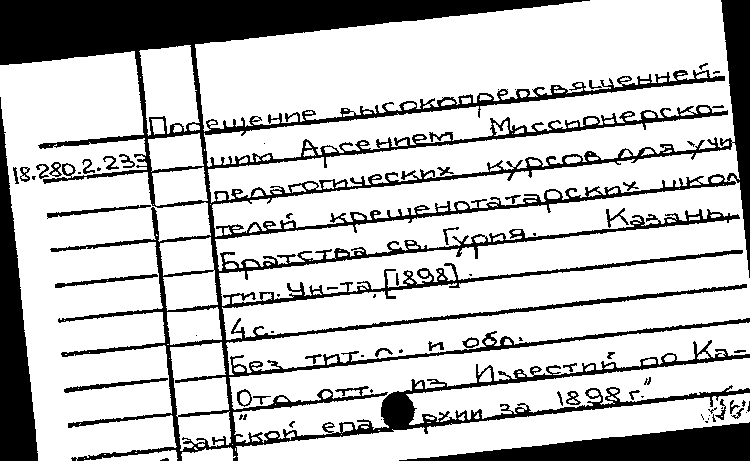 Посещение высокопреосвященней-
18.280.2.233 шим Арсением Миссионерско-
педагогических курсов для учи
телей крещенотатарских школ
Братства св. Гурия. Казань,
тип. Ун-та, [1898].
4 с.
Без тит. л. и обл.
Отд. отт. из "Известий по Ка-
занской епархии за 1898 г."